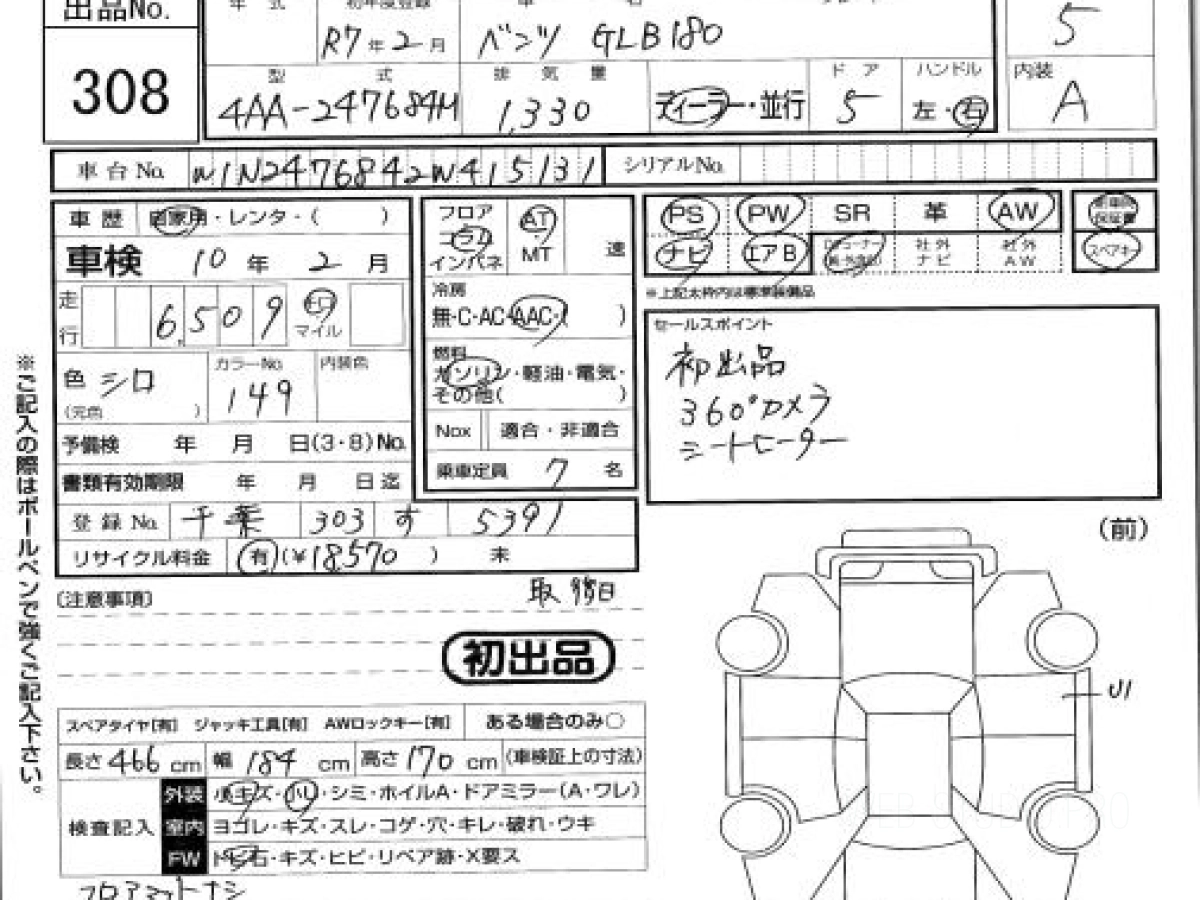 出品No.
308
年 式
初年度登録
R7年2月
ベンツ GLB180
5
型 式
4AA-247684M
排 気 量
1,330
ディーラー・並行
ド ア
5
ハンドル
左・右
内装
A
車台No.
W1N2476842W415131
シリアルNo.
車 歴 自家用・レンタ・( )
車検 10年 2月
走行 6,509 キロ マイル
色 シロ
(元色 )
カラーNo.
149
内装色
予備検 年 月 日(3・8)No.
書類有効期限 年 月 日迄
登録No. 千葉 303 す 5391
リサイクル料金 有(¥18,570 ) 未
フロア
コラム
インパネ
AT
・
MT
速
冷房
無・C・AC・AAC・( )
燃料
ガソリン・軽油・電気・
その他( )
Nox 適合・非適合
乗車定員 7 名
PS PW SR 革 AW
ナビ エアB
社外ナビ
社外AW
保証書
スペアキー
※上記太枠内は標準装備品
セールスポイント
初出品
360°カメラ
シートヒーター
※ご記入の際はボールペンで強くご記入下さい。
(注意事項)
初出品
スペアタイヤ[有] ジャッキ工具[有] AWロックキー[有] ある場合のみ○
長さ 466 cm 幅 184 cm 高さ 170 cm (車検証上の寸法)
検査記入
外装 小キズ・小U・シミ・ホイルA・ドアミラー(A・ワレ)
室内 ヨゴレ・キズ・スレ・コゲ・穴・キレ・破れ・ウキ
FW トビ石・キズ・ヒビ・リペア跡・X要ス
フロアマットナシ
(前)
U1